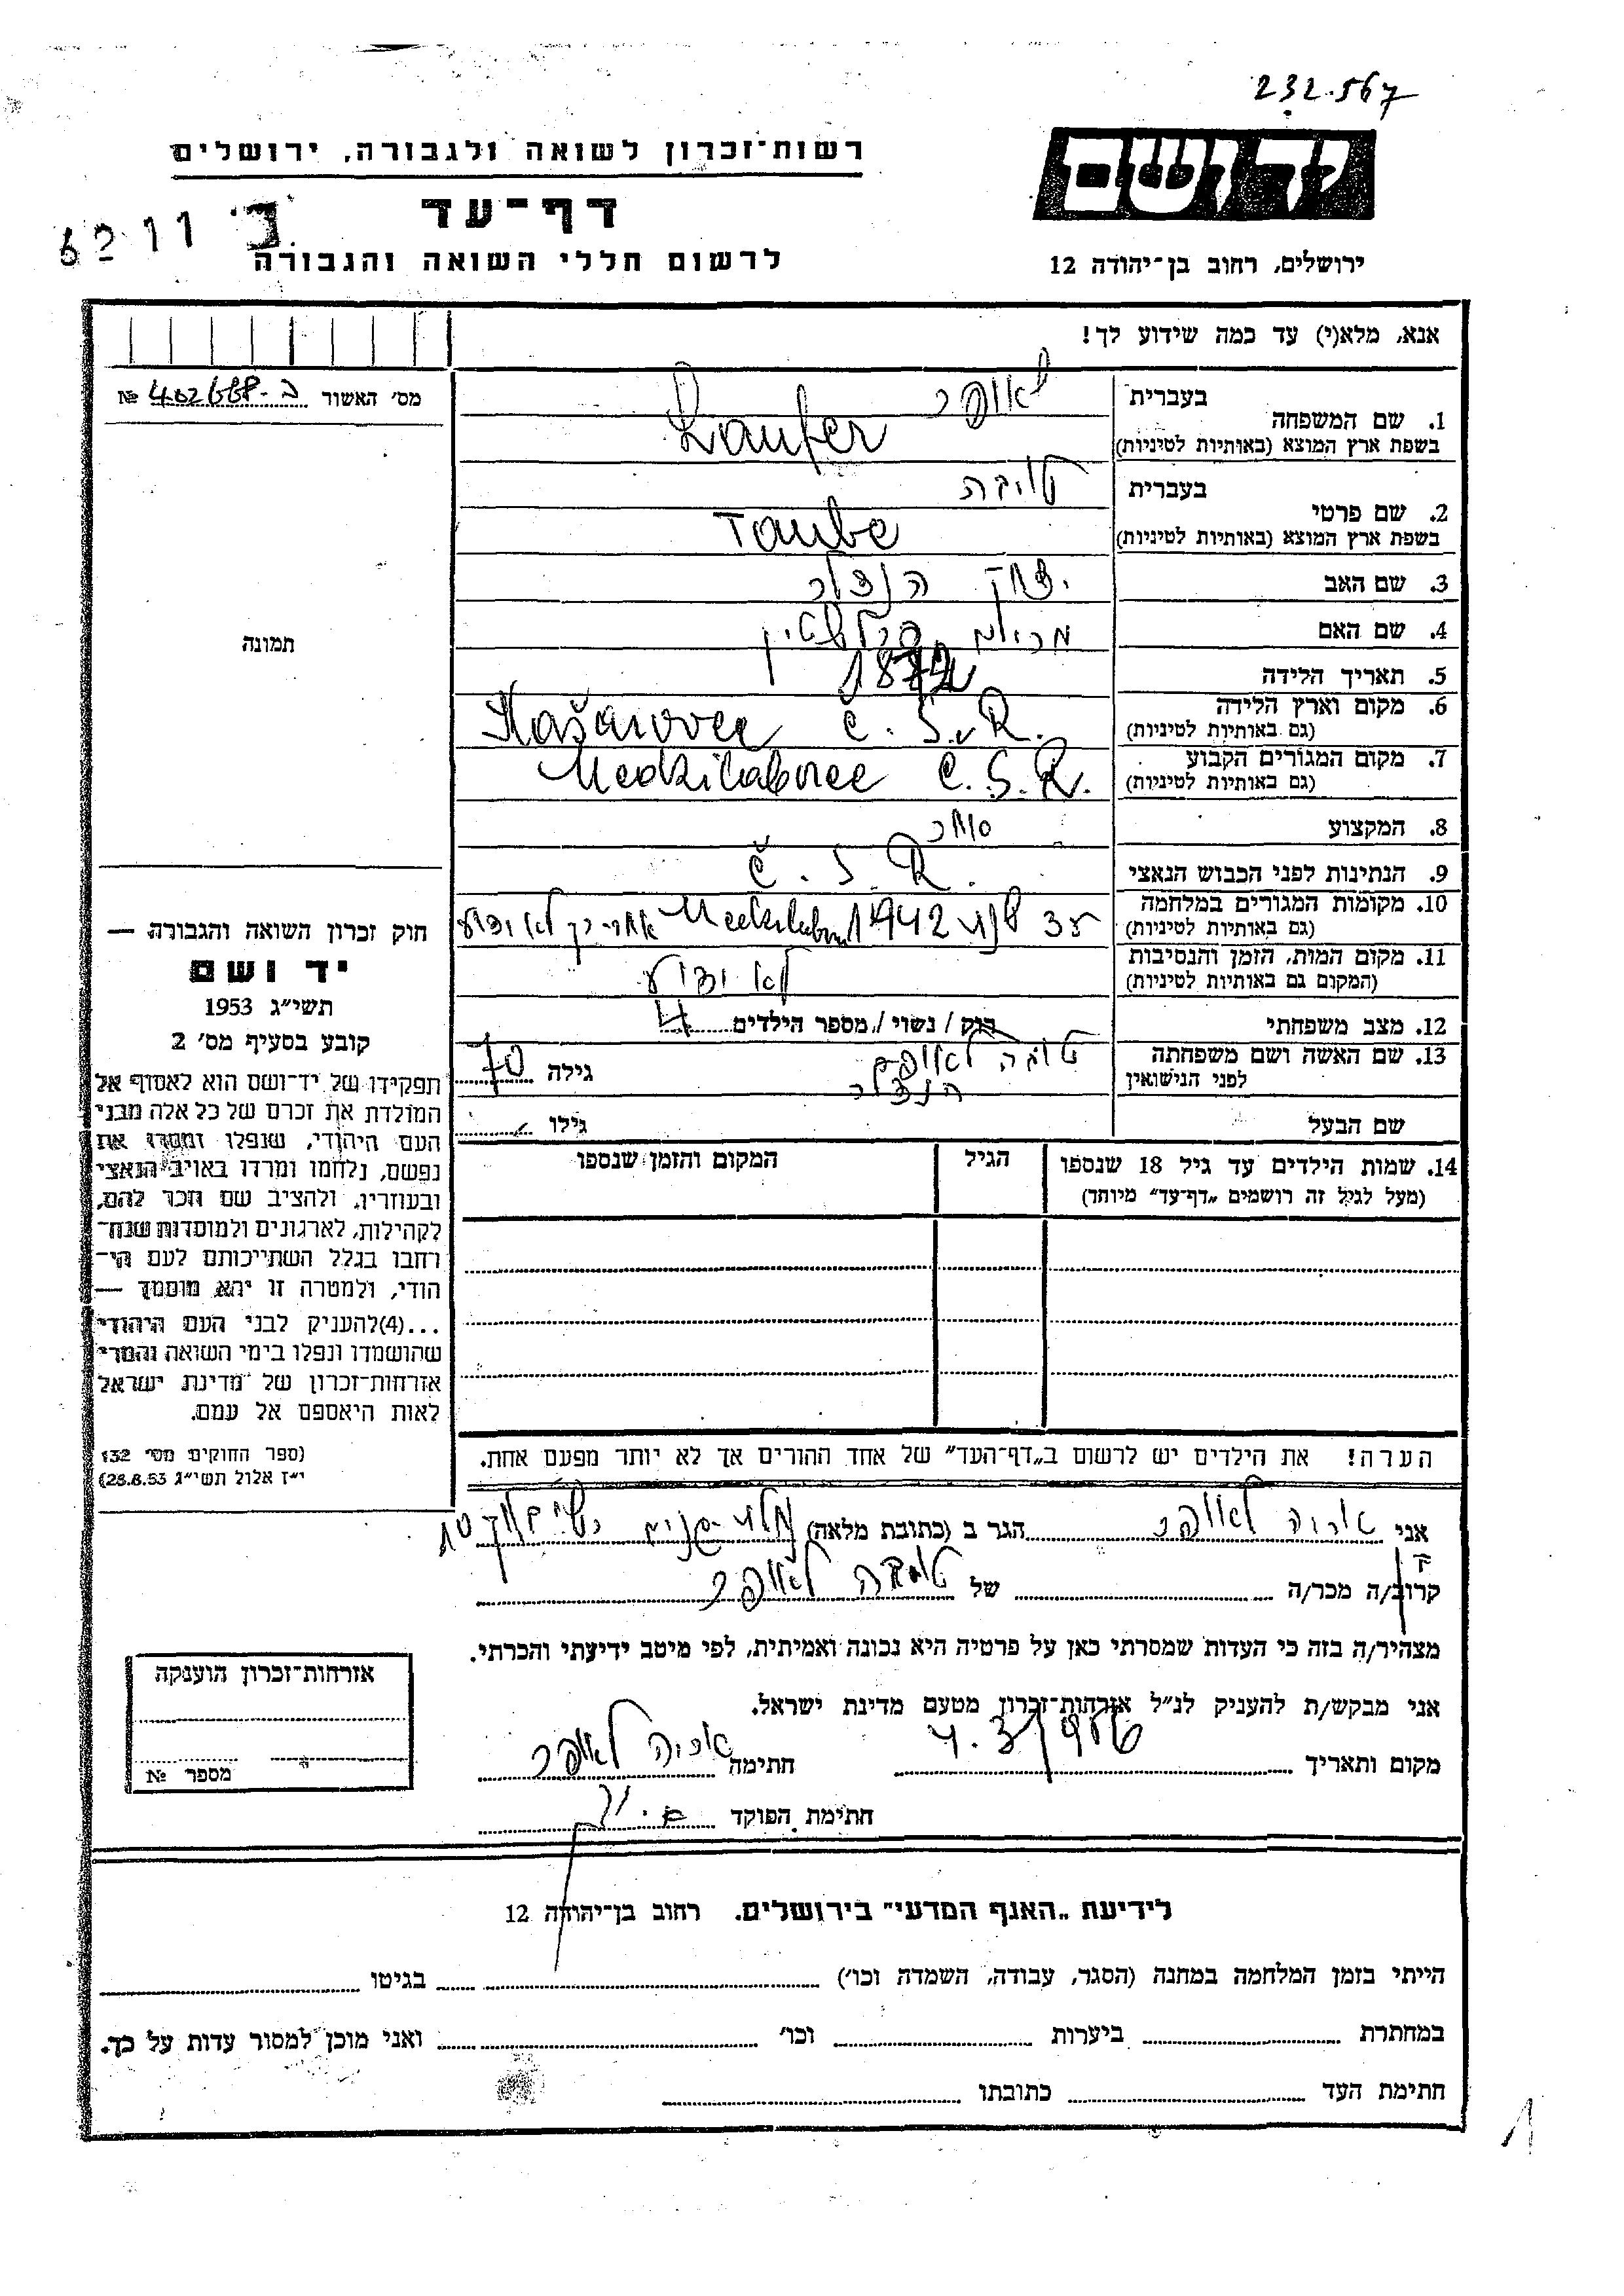 232.567
יד ושם
רשות-זכרון לשואה ולגבורה, ירושלים
דף-עד
לרשום חללי השואה והגבורה
ירושלים, רחוב בן-יהודה 12
אנא, מלא(י) עד כמה שידוע לך!
מס׳ האשור №
1. שם המשפחה
בעברית
לאופר
בשפת ארץ המוצא (באותיות לטיניות)
Laufer
2. שם פרטי
בעברית
טויבה
בשפת ארץ המוצא (באותיות לטיניות)
Taube
3. שם האב
יצחק הנדלר
4. שם האם
מרים
5. תאריך הלידה
6. מקום וארץ הלידה
(גם באותיות לטיניות)
Č. S. R.
7. מקום המגורים הקבוע
(גם באותיות לטיניות)
Medzilaborce Č. S. R.
8. המקצוע
סוחר
9. הנתינות לפני הכבוש הנאצי
Č. S. R.
10. מקומות המגורים במלחמה
(גם באותיות לטיניות)
עד שנת 1942 אחרי-כן לא ידוע
11. מקום המות, הזמן והנסיבות
(המקום גם באותיות לטיניות)
לא ידוע
12. מצב משפחתי
רוק / נשוי / מספר הילדים 4
13. שם האשה ושם משפחתה
לפני הנישואין
טובה לאופר
הנדלר
גילה 70
שם הבעל
גילו
14. שמות הילדים עד גיל 18 שנספו
(מעל לגיל זה רושמים „דף-עד״ מיוחד)
הגיל
המקום והזמן שנספו
הערה! את הילדים יש לרשום ב„דף-העד״ של אחד ההורים אך לא יותר מפעם אחת.
תמונה
חוק זכרון השואה והגבורה —
יד ושם
תשי״ג 1953
קובע בסעיף מס׳ 2
תפקידו של יד-ושם הוא לאסוף אל
המולדת את זכרם של כל אלה מבני
העם היהודי, שנפלו ומסרו את
נפשם, נלחמו ומרדו באויב הנאצי
ובעוזריו, ולהציב שם וזכר להם,
לקהילות, לארגונים ולמוסדות שנח-
רבו בגלל השתייכותם לעם הי-
הודי, ולמטרה זו יהא מוסמך —
...(4) להעניק לבני העם היהודי
שהושמדו ונפלו בימי השואה והמרי
אזרחות-זכרון של מדינת ישראל
לאות היאספם אל עמם.
(ספר החוקים מס׳ 132
י״ז אלול תשי״ג 28.8.53)
אני אריה לאופר הגר ב (כתובת מלאה)
קרוב/ה מכר/ה של טובה לאופר
מצהיר/ה בזה כי העדות שמסרתי כאן על פרטיה היא נכונה ואמיתית, לפי מיטב ידיעתי והכרתי.
אני מבקש/ת להעניק לנ״ל אזרחות-זכרון מטעם מדינת ישראל.
מקום ותאריך
חתימה אריה לאופר
חתימת הפוקד
אזרחות-זכרון הוענקה
מספר №
לידיעת „האגף המדעי״ בירושלים, רחוב בן-יהודה 12
הייתי בזמן המלחמה במחנה (הסגר, עבודה, השמדה וכו׳) בגיטו
במחתרת ביערות וכו׳ ואני מוכן למסור עדות על כך.
חתימת העד כתובתו